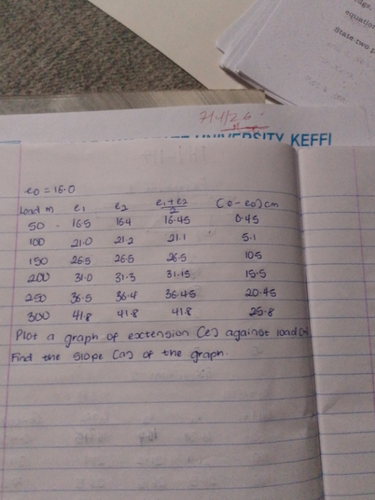 equation
State two p
UNIVERSITY KEFFI
e0 = 16.0
Load m e1 e2 e1+e2/2 (e-e0)cm
50 16.5 16.4 16.45 0.45
100 21.0 21.2 21.1 5.1
150 26.5 26.5 26.5 10.5
200 31.0 31.3 31.15 15.5
250 36.5 36.4 36.45 20.45
300 41.8 41.8 41.8 25.8
Plot a graph of extension (e) against load(m)
Find the slope (a) of the graph.